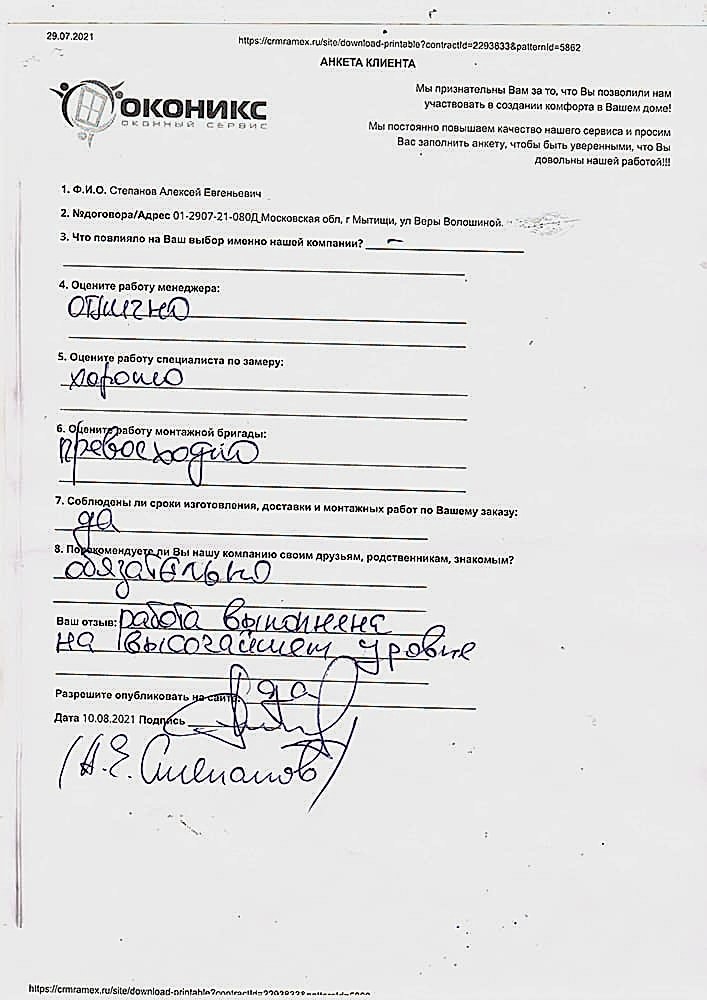 29.07.2021
https://crmramex.ru/site/download-printable?contractId=2293833&patternId=5862
АНКЕТА КЛИЕНТА
ОКОНИКС
ОКОННЫЙ СЕРВИС
Мы признательны Вам за то, что Вы позволили нам
участвовать в создании комфорта в Вашем доме!
Мы постоянно повышаем качество нашего сервиса и просим
Вас заполнить анкету, чтобы быть уверенными, что Вы
довольны нашей работой!!!
1. Ф.И.О. Степанов Алексей Евгеньевич
2. №договора/Адрес 01-2907-21-080Д,Московская обл, г Мытищи, ул Веры Волошиной.
3. Что повлияло на Ваш выбор именно нашей компании? —
4. Оцените работу менеджера:
отлично
5. Оцените работу специалиста по замеру:
хорошо
6. Оцените работу монтажной бригады:
превосходно
7. Соблюдены ли сроки изготовления, доставки и монтажных работ по Вашему заказу:
да
8. Порекомендуете ли Вы нашу компанию своим друзьям, родственникам, знакомым?
обязательно
Ваш отзыв: работа выполнена
на высочайшем уровне
Разрешите опубликовать на сайте: да
Дата 10.08.2021 Подпись
(А.Е. Степанов)